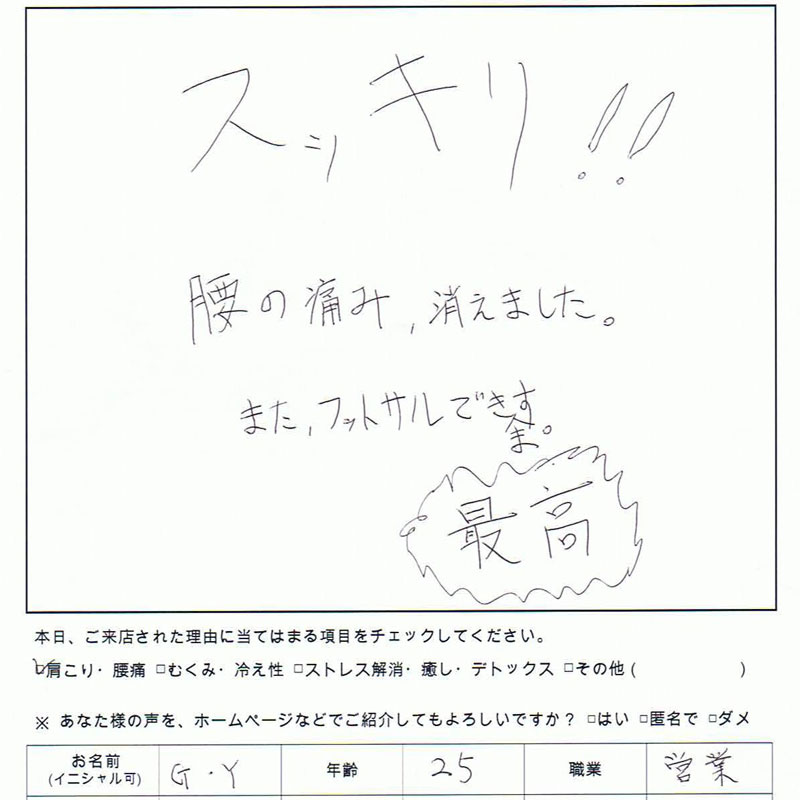 スッキリ!!
腰の痛み,消えました。
また,フットサルできます。
最高
本日、ご来店された理由に当てはまる項目をチェックしてください。
☑肩こり・腰痛 □むくみ・冷え性 □ストレス解消・癒し・デトックス □その他( )
※ あなた様の声を、ホームページなどでご紹介してもよろしいですか？ □はい □匿名で □ダメ
お名前 (イニシャル可) G.Y 年齢 25 職業 営業